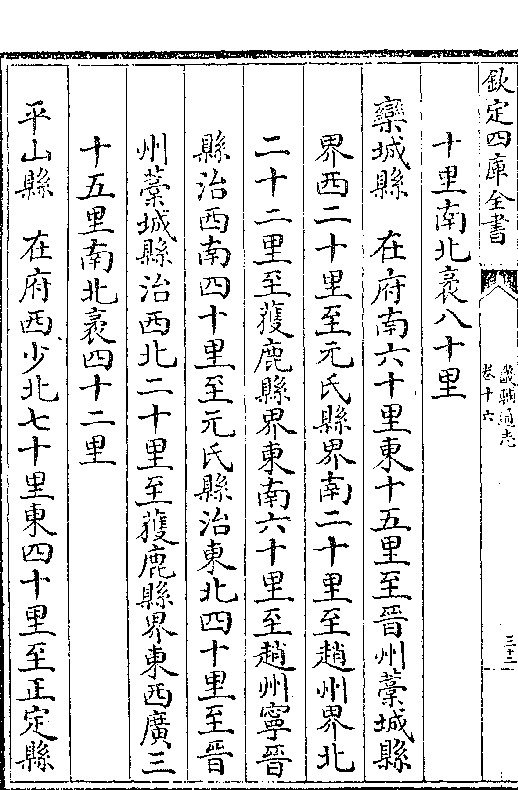 欽定四庫全書
畿輔通志
卷十六
三十二
十里南北袤八十里
欒城縣　在府南六十里東十五里至晉州藁城縣
界西二十里至元氏縣界南二十里至趙州界北
二十二里至獲鹿縣界東南六十里至趙州寧晉
縣治西南四十里至元氏縣治東北四十里至晉
州藁城縣治西北二十里至獲鹿縣界東西廣三
十五里南北袤四十二里
平山縣　在府西少北七十里東四十里至正定縣